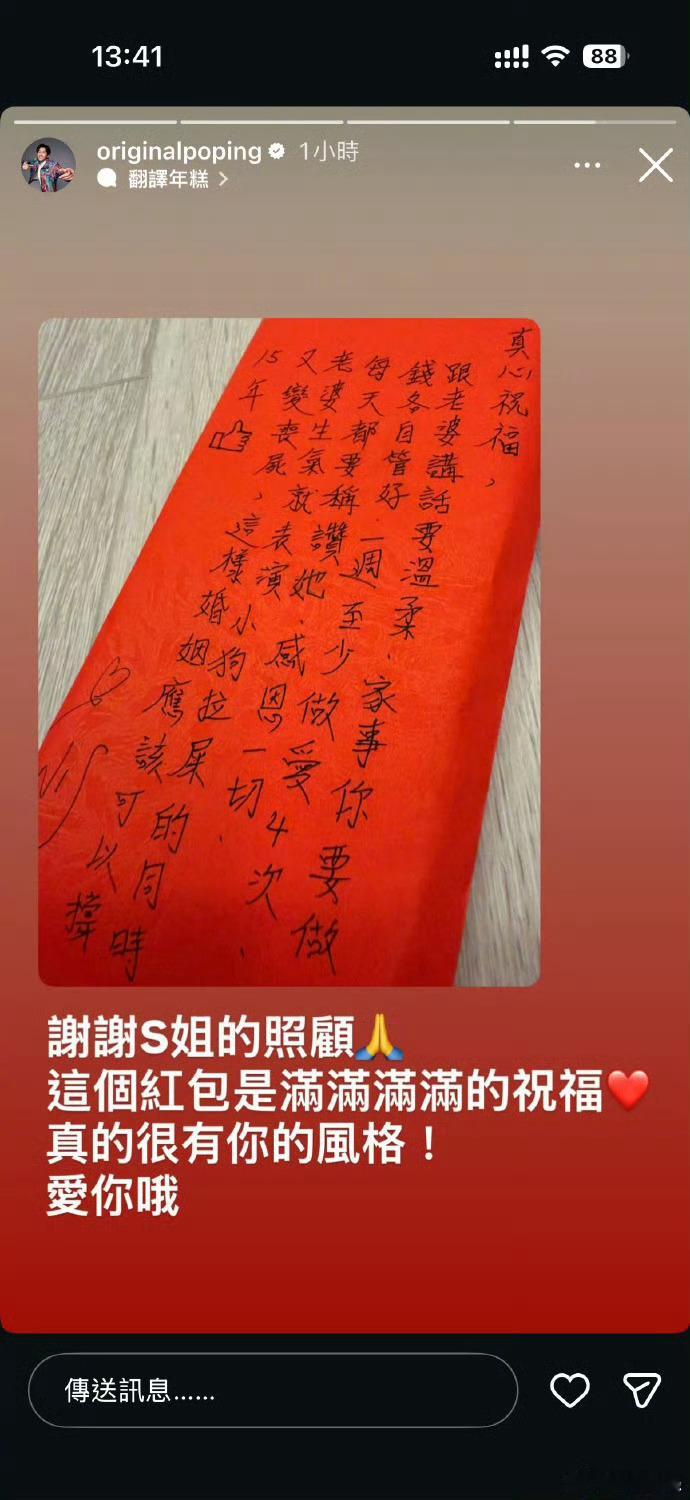 13:41
88
originalpoping 1小時
翻譯年糕 >
真心祝福，
跟老婆講話要溫柔．家事你要做
錢各自管好．一週至少做愛4次．
每天都要稱讚她．感恩一切．
老婆生氣就表演小狗拉屎的同時
又變喪屍，這樣婚姻應該可以撐
15年👍
謝謝S姐的照顧🙏
這個紅包是滿滿滿滿的祝福❤️
真的很有你的風格！
愛你哦
傳送訊息......